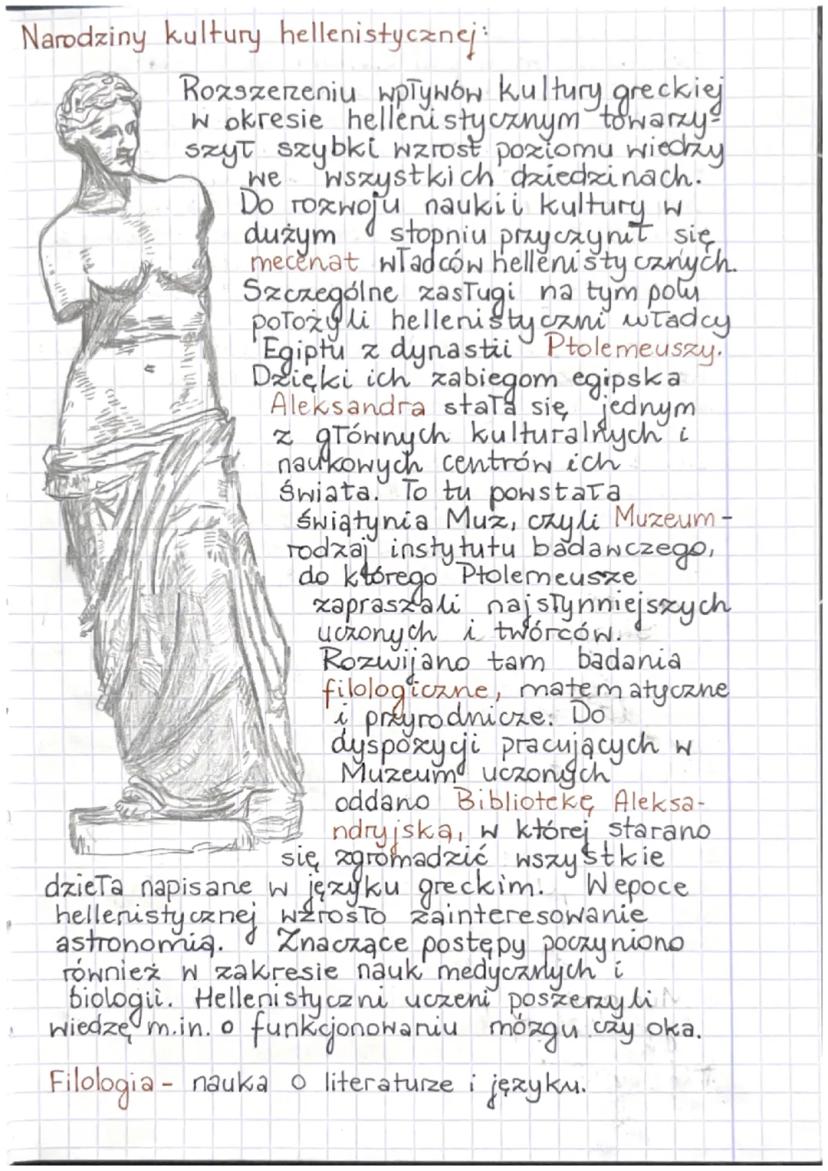 Narodziny kultury hellenistycznej:
Rozszerzeniu wpływów kultury greckiej
w okresie hellenistycznym towarzy-
szył szybki wzrost poziomu wiedzy
we wszystkich dziedzinach.
Do rozwoju nauki i kultury w
dużym stopniu przyczynił się
mecenat władców hellenistycznych.
Szczególne zasługi na tym polu
położyli hellenistyczni władcy
Egiptu z dynastii Ptolemeuszy.
Dzięki ich zabiegom egipska
Aleksandra stała się jednym
z głównych kulturalnych i
naukowych centrów ich
świata. To tu powstała
świątynia Muz, czyli Muzeum-
rodzaj instytutu badawczego,
do którego Ptolemeusze
zapraszali najsłynniejszych
uczonych i twórców.
Rozwijano tam badania
filologiczne, matematyczne
i przyrodnicze. Do
dyspozycji pracujących w
Muzeum uczonych
oddano Bibliotekę Aleksa-
ndryjską, w której starano
się zgromadzić wszystkie
dzieła napisane w języku greckim. W epoce
hellenistycznej wzrosło zainteresowanie
astronomią. Znaczące postępy poczyniono
również w zakresie nauk medycznych i
biologii. Hellenistyczni uczeni poszerzyli
wiedzę m.in. o funkcjonowaniu mózgu czy oka.
Filologia - nauka o literaturze i języku.